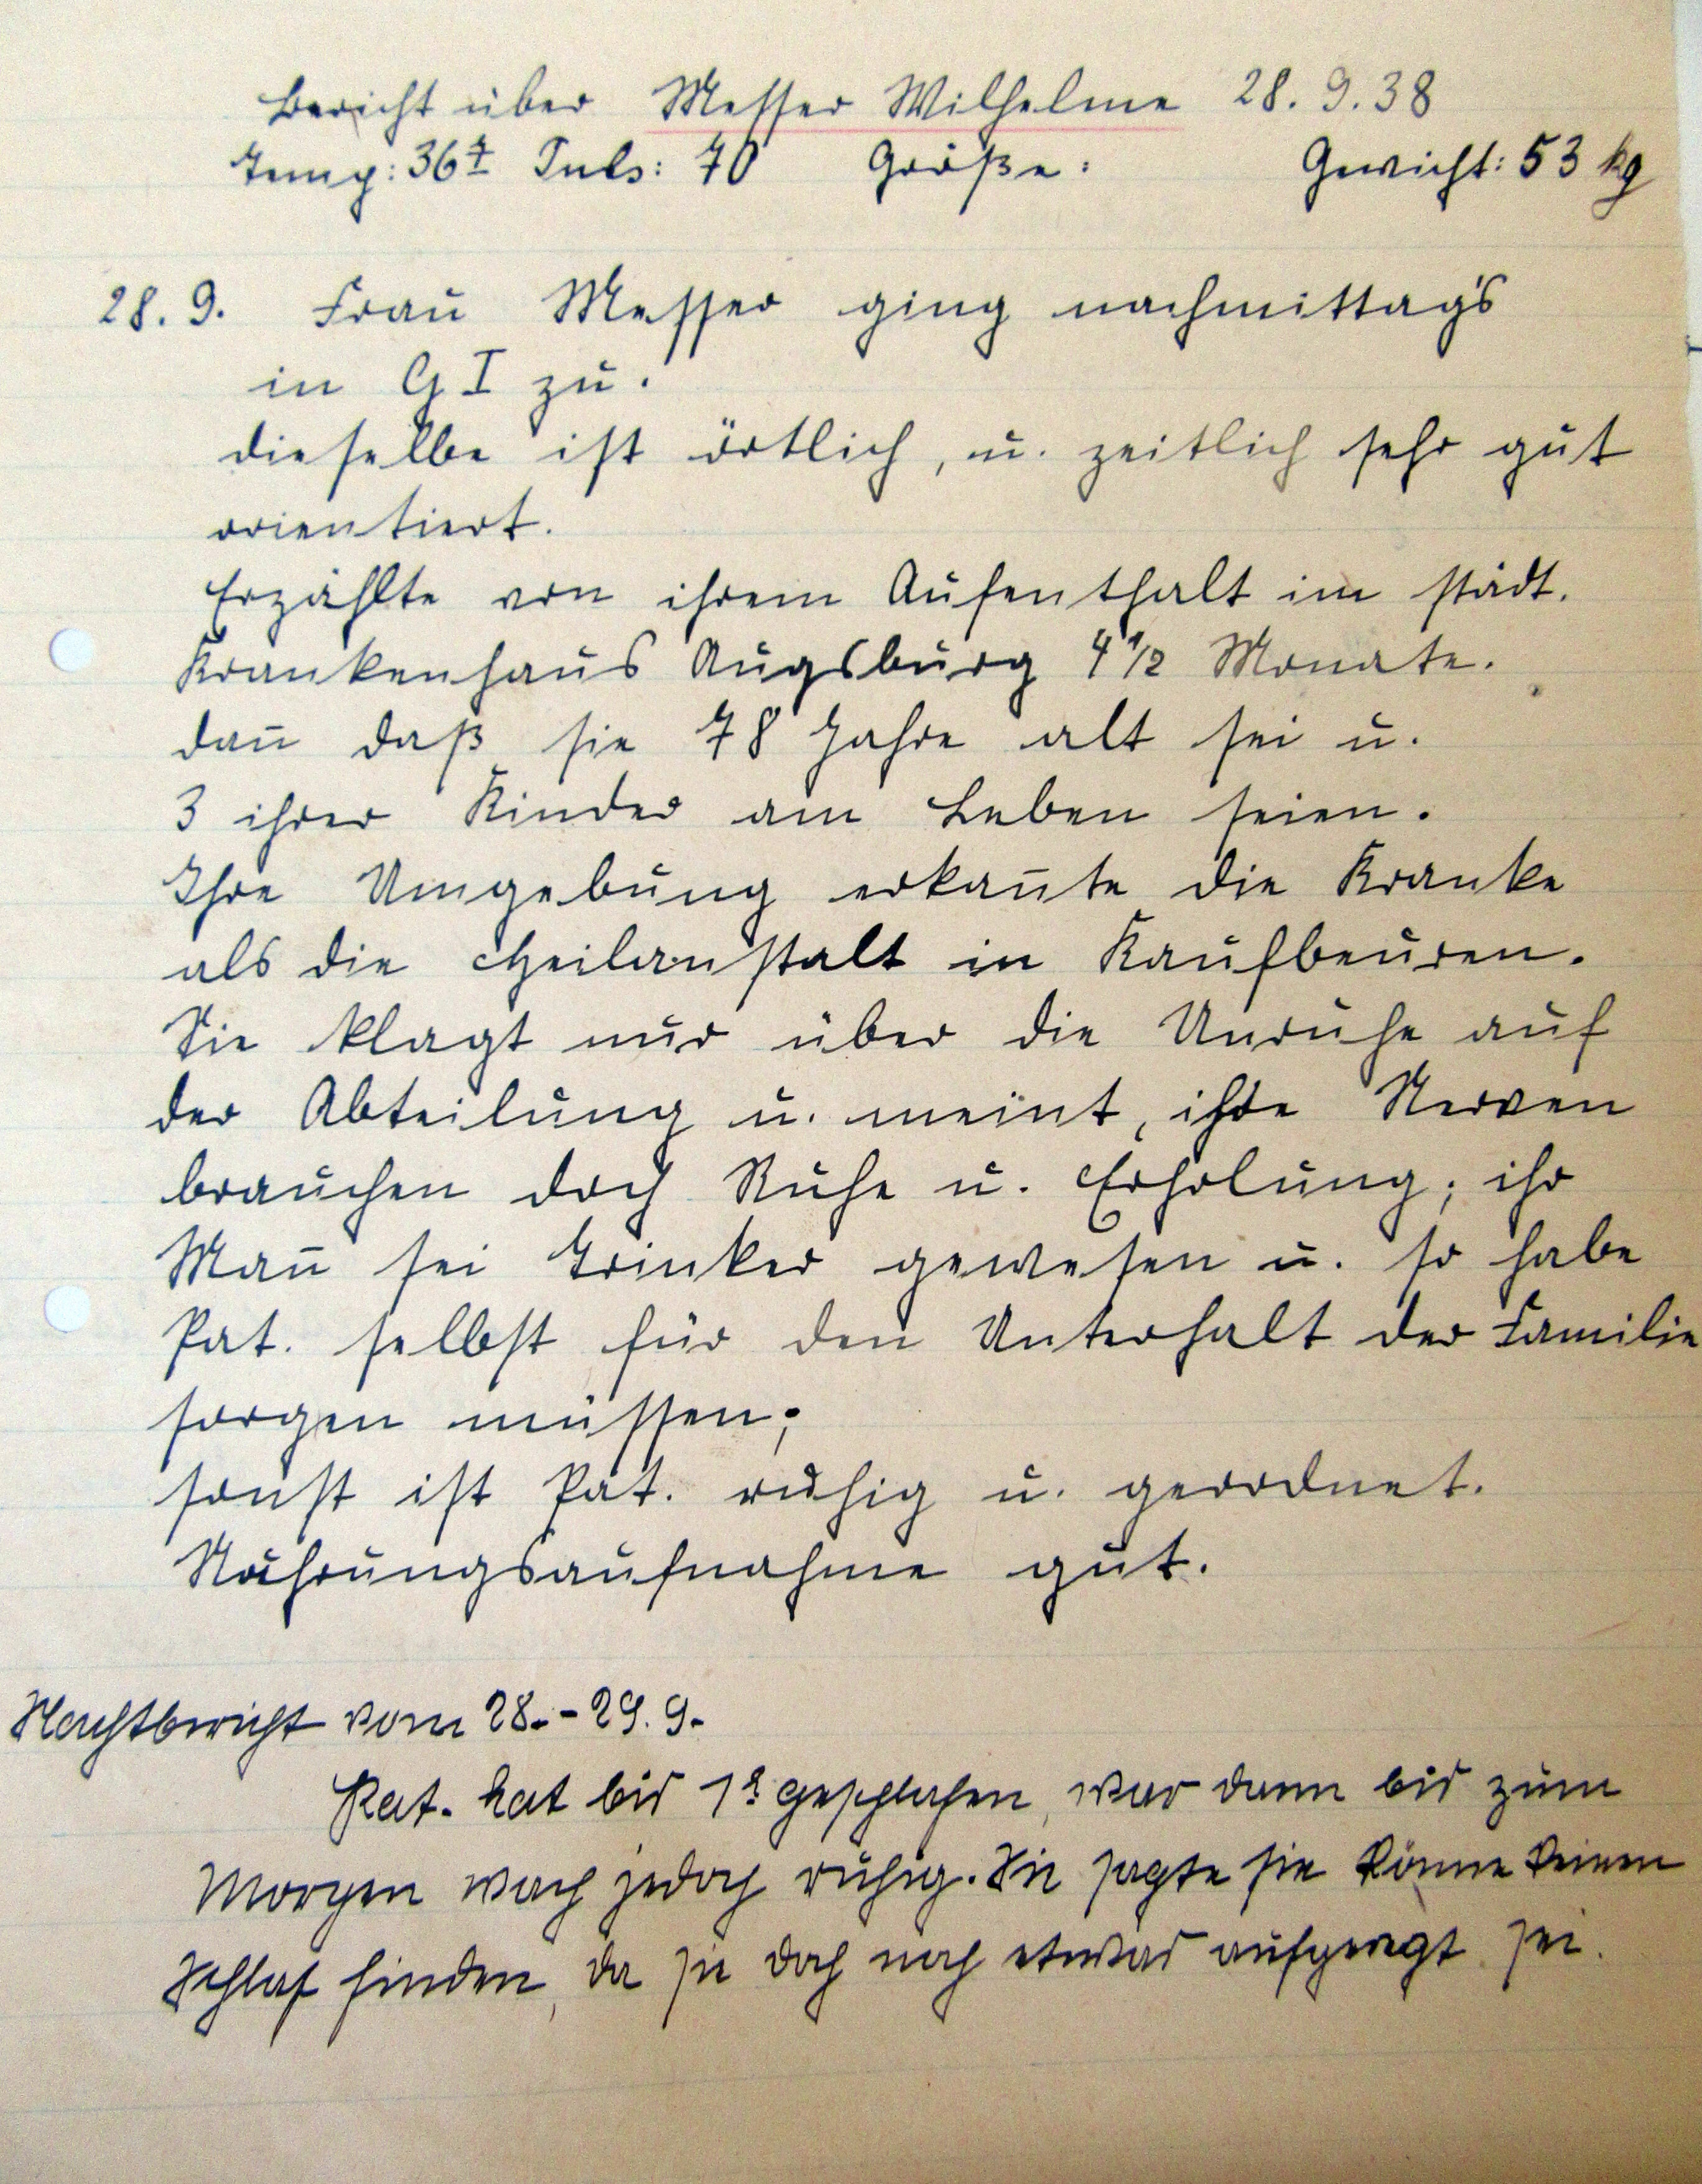 Bericht über Messer Wilhelme 28. 9. 38
Temp: 36⁷ Puls: 70 Größe: Gewicht: 53 kg
28. 9. Frau Messer ging nachmittags
in G I zu.
dieselbe ist örtlich, u. zeitlich sehr gut
orientiert.
Erzählte von ihrem Aufenthalt im städt.
Krankenhaus Augsburg 4 1/2 Monate.
dan̄ daß sie 78 Jahre alt sei u.
3 ihrer Kinder am Leben seien.
Ihre Umgebung erkan̄te die Kranke
als die Heilanstalt in Kaufbeuren.
Sie klagt nur über die Unruhe auf
der Abteilung u. meint, ihre Nerven
brauchen doch Ruhe u. Erholung; ihr
Man̄ sei Trinker gewesen u. so habe
Pat. selbst für den Unterhalt der Familie
sorgen müssen;
sonst ist Pat. ruhig u. geordnet.
Nahrungsaufnahme gut.
Nachtbericht vom 28. - 29. 9.
Pat. hat bis geschlafen, war dann bis zum
Morgen wach jedoch ruhig. Sie sagte sie könne keinen
Schlaf finden, da sie doch noch etwas aufgeregt sei.